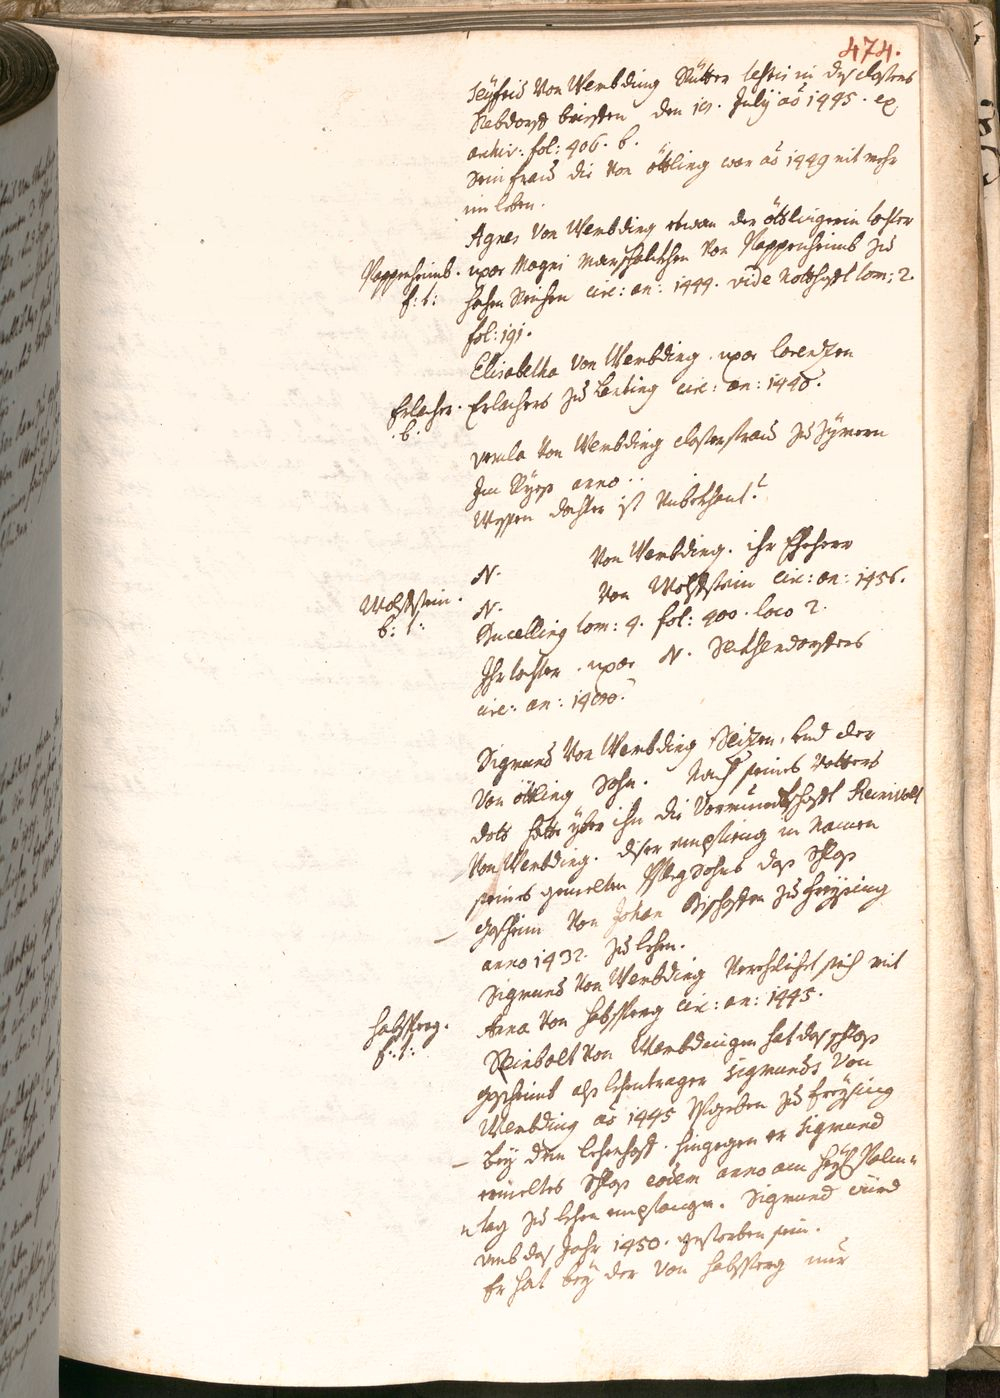 474.
Seÿfrid Von Wembding Ritter lehnt in des Closters
Rebdorff brieffen den 19. Julÿ ao 1445. ex
archiv: fol: 406. b.
Sein frau die Von ötting war ao 1449 nit mehr
im leben.
Agnes Von Wembding etwan der öttlingerin tochter
Pappenheimb. uxor Magni Marschalckhen Von Pappenheimb zu
f: t: hohen Reichen circ: an: 1444. vide Notthafft tom: 2.
fol: 191.
Elisabetha Von Wembding uxor Lorenzen
Erlacher. Erlachers zu Lenting circ: an: 1440.
b.
Ursula Von Wembding Closterfrau zu Zÿmern
Im Rÿess anno ..
Wessen dochter ist Unbekhant?
N. Von Wembding. ihr Eheherr
Wolfstein. N. Von Wolfstein circ: an: 1456.
b: t: Bucelling tom: 4. fol: 400. loco 2.
Ihr tochter uxor N. Sekhendorffers
circ: an: 1400.
Sigmund Von Wembding Seizen, Und der
Von ötting Sohn. Nach seines Vatters
dots hatte yber ihn die Vormundtschafft Reinbolt
Von Wembding. diser empfieng in Namen
seines gemelten Pflegsohns das Schloss
Gosheim Von Johan Bischoffen zu Freÿsing
anno 1432. zu lehen.
Sigmund Von Wembding Verehlichet sich mit
Habsperg. Anna Von Habsperg circ: an: 1445.
f: t:
Reinbolt Von Wembdingen hat das schloss
Gosheimb alss lehentrager Sigmunds Von
Wembding ao 1445 aufgeben zu Freÿsing
beÿ dem lehenhoff. hingegen er Sigmund
ermeltes Schloss eodem anno am heÿl Palm-
tag zu lehen empfangen. Sigmund würd
umb das Jahr 1450. gestorben sein.
Er hat beÿ der Von Habsperg nur